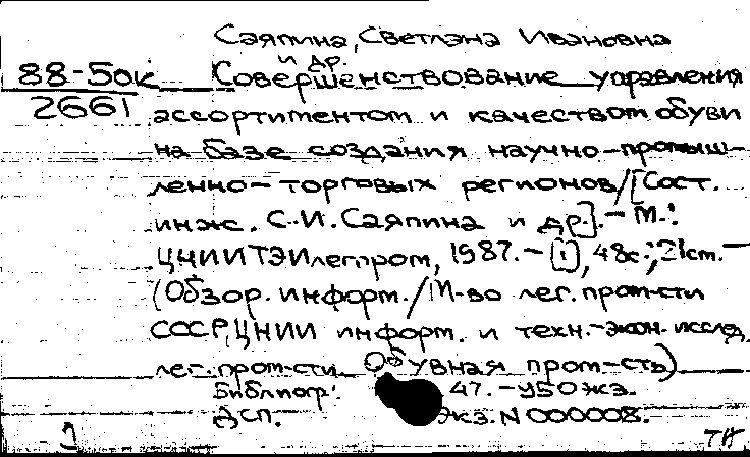 Саяпина, Светлана Ивановна
и др.
88-50к Совершенствование управления
2661 ассортиментом и качеством обуви
на базе создания научно-промыш-
ленно-торговых регионов/[Сост.
инж. С.И. Саяпина и др.].- М.:
ЦНИИТЭИлегпром, 1987.-[1], 48с.; 21см.-
(Обзор. информ./М-во лег. пром-сти
СССР, ЦНИИ информ. и техн.-экон. исслед.
лег. пром-сти. Обувная пром-сть)
Библиогр.: 47.-
ДСП. экз. N 000008.